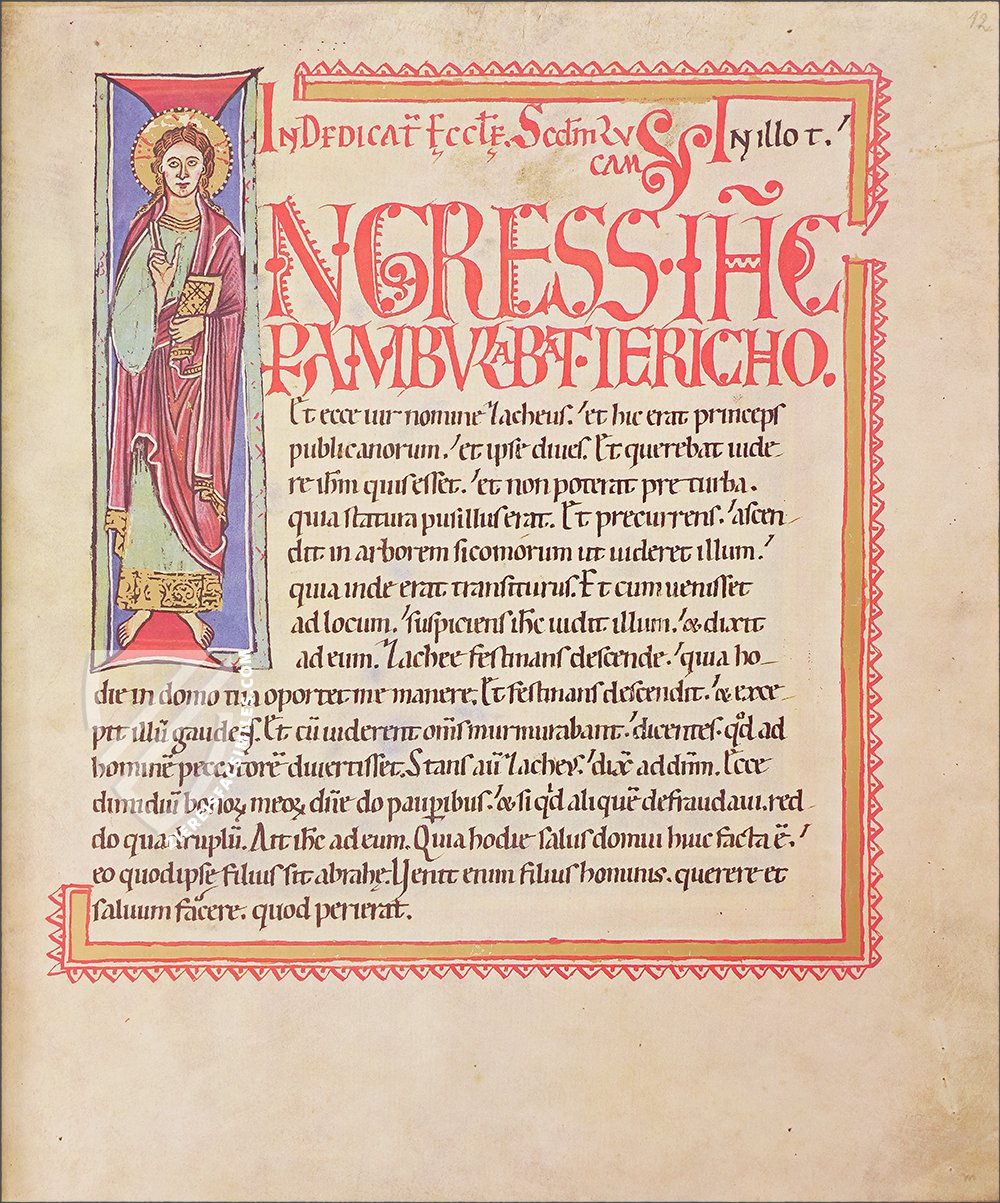 12
In Dedicat̄ Ęcclę. Scdm̄ Lv
cam In illo t.
INGRESS·IH̄C
PAM·BVLABAT·IERICHO.
Et ecce uir nomine Zacheus. et hic erat princeps
publicanorum. et ipse diues. Et querebat uide-
re ih̄m quis esset. et non poterat pre turba.
quia statura pusillus erat. Et precurrens. ascen-
dit in arborem sicomorum ut uideret illum.
quia inde erat transiturus. Et cum uenisset
ad locum. suspiciens ih̄c uidit illum. & dixit
ad eum. Zachee festinans descende. quia ho-
die in domo tua oportet me manere. Et festinans descendit. & exce-
pit illū gaudēs. Et cū uiderent om̄s murmurabant. dicentes. qd̄ ad
hominē peccatorē diuertisset. Stans aū Zacheus. dix̄ ad dn̄m. Ecce
dimidiū bonoꝝ meoꝝ dn̄e do pauꝑibus. & si qd̄ aliquē defraudaui. red-
do quadruplū. Ait ih̄c ad eum. Quia hodie salus domui huic facta ē.
eo quod ipsę filius sit abrahę. Uenit enim filius hominis. querere et
saluum facere. quod perierat.